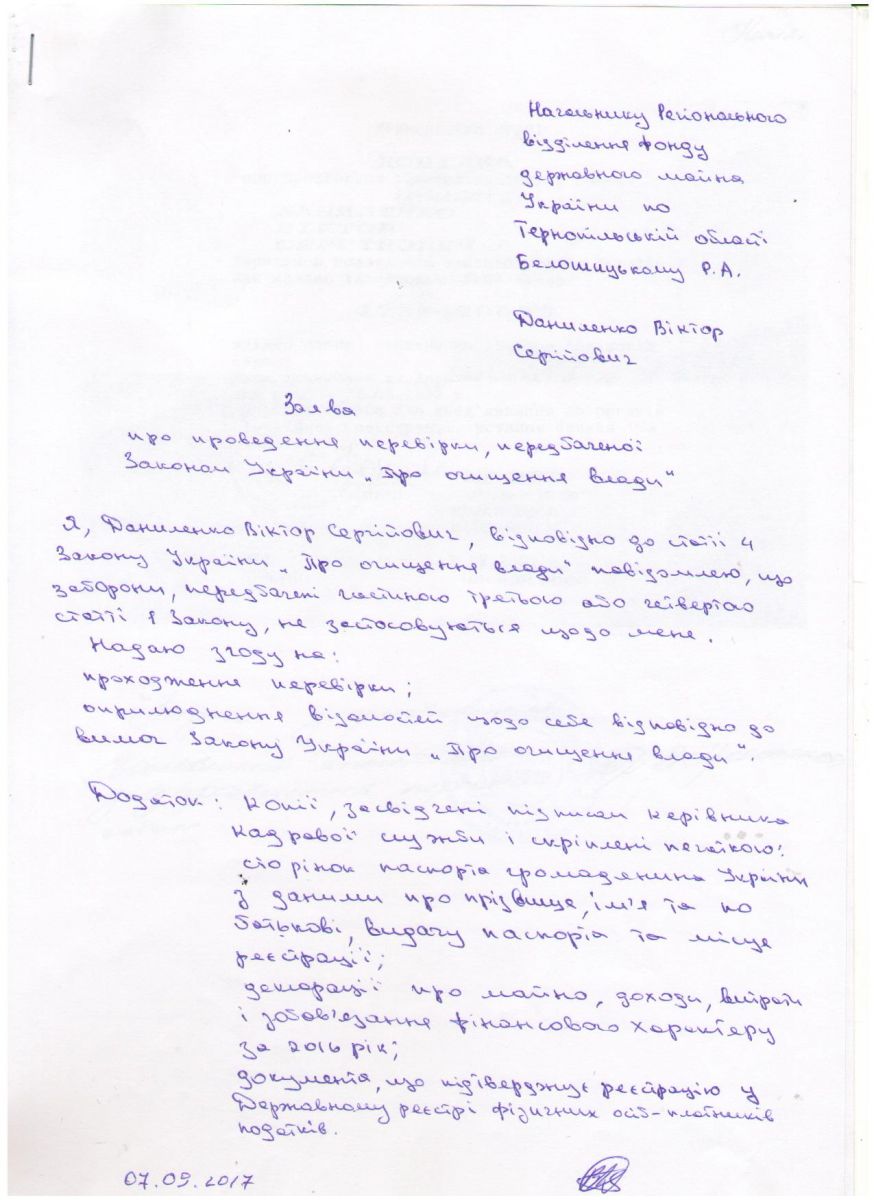 Начальнику Регіонального
відділення фонду
державного майна
України по
Тернопільській області
Белошицькому Р.А.
Даниленко Віктор
Сергійович
Заява
про проведення перевірки, передбаченої
Законом України „Про очищення влади"
Я, Даниленко Віктор Сергійович, відповідно до статті 4
Закону України „Про очищення влади" повідомляю, що
заборони, передбачені частиною третьою або четвертою
статті 1 Закону, не застосовуються щодо мене.
Надаю згоду на:
проходження перевірки;
оприлюднення відомостей щодо себе відповідно до
вимог Закону України „Про очищення влади".
Додаток: копії, засвідчені підписом керівника
кадрової служби і скріплені печаткою:
сторінок паспорта громадянина України
з даними про прізвище, ім'я та по
батькові, видачу паспорта та місце
реєстрації;
декларації про майно, доходи, витрати
і зобов'язання фінансового характеру
за 2016 рік;
документа, що підтверджує реєстрацію у
Державному реєстрі фізичних осіб-платників
податків.
07.09.2017